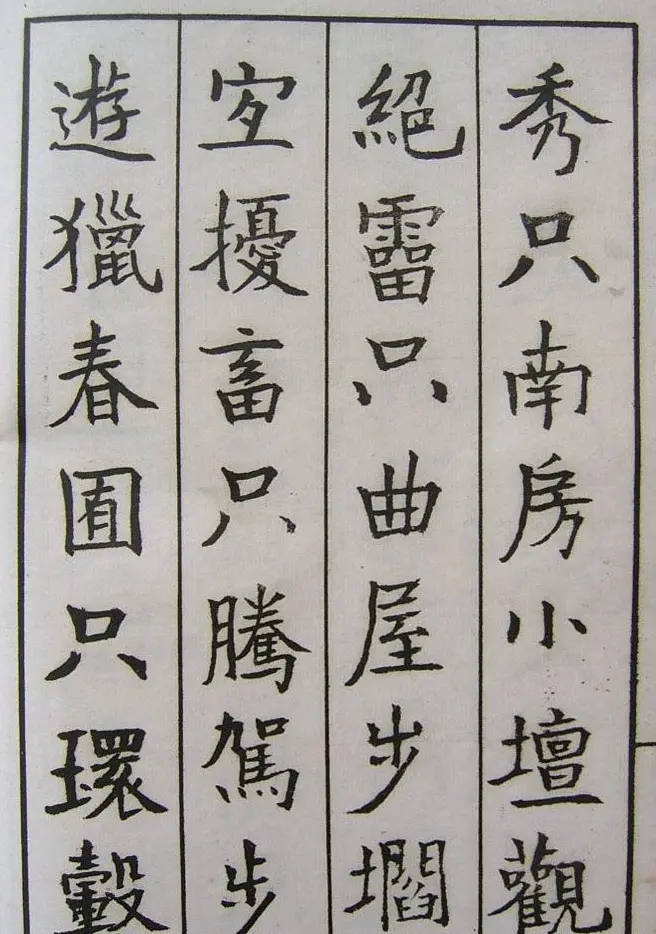 秀只南房小壇觀
絕霤只曲屋步壛
宐擾畜只騰駕步
遊獵春囿只環轂